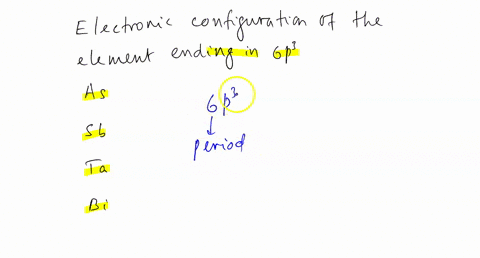 Electronic configuration of the
element ending in 6p³
As
6p³
Sb
period
Ta
Bi